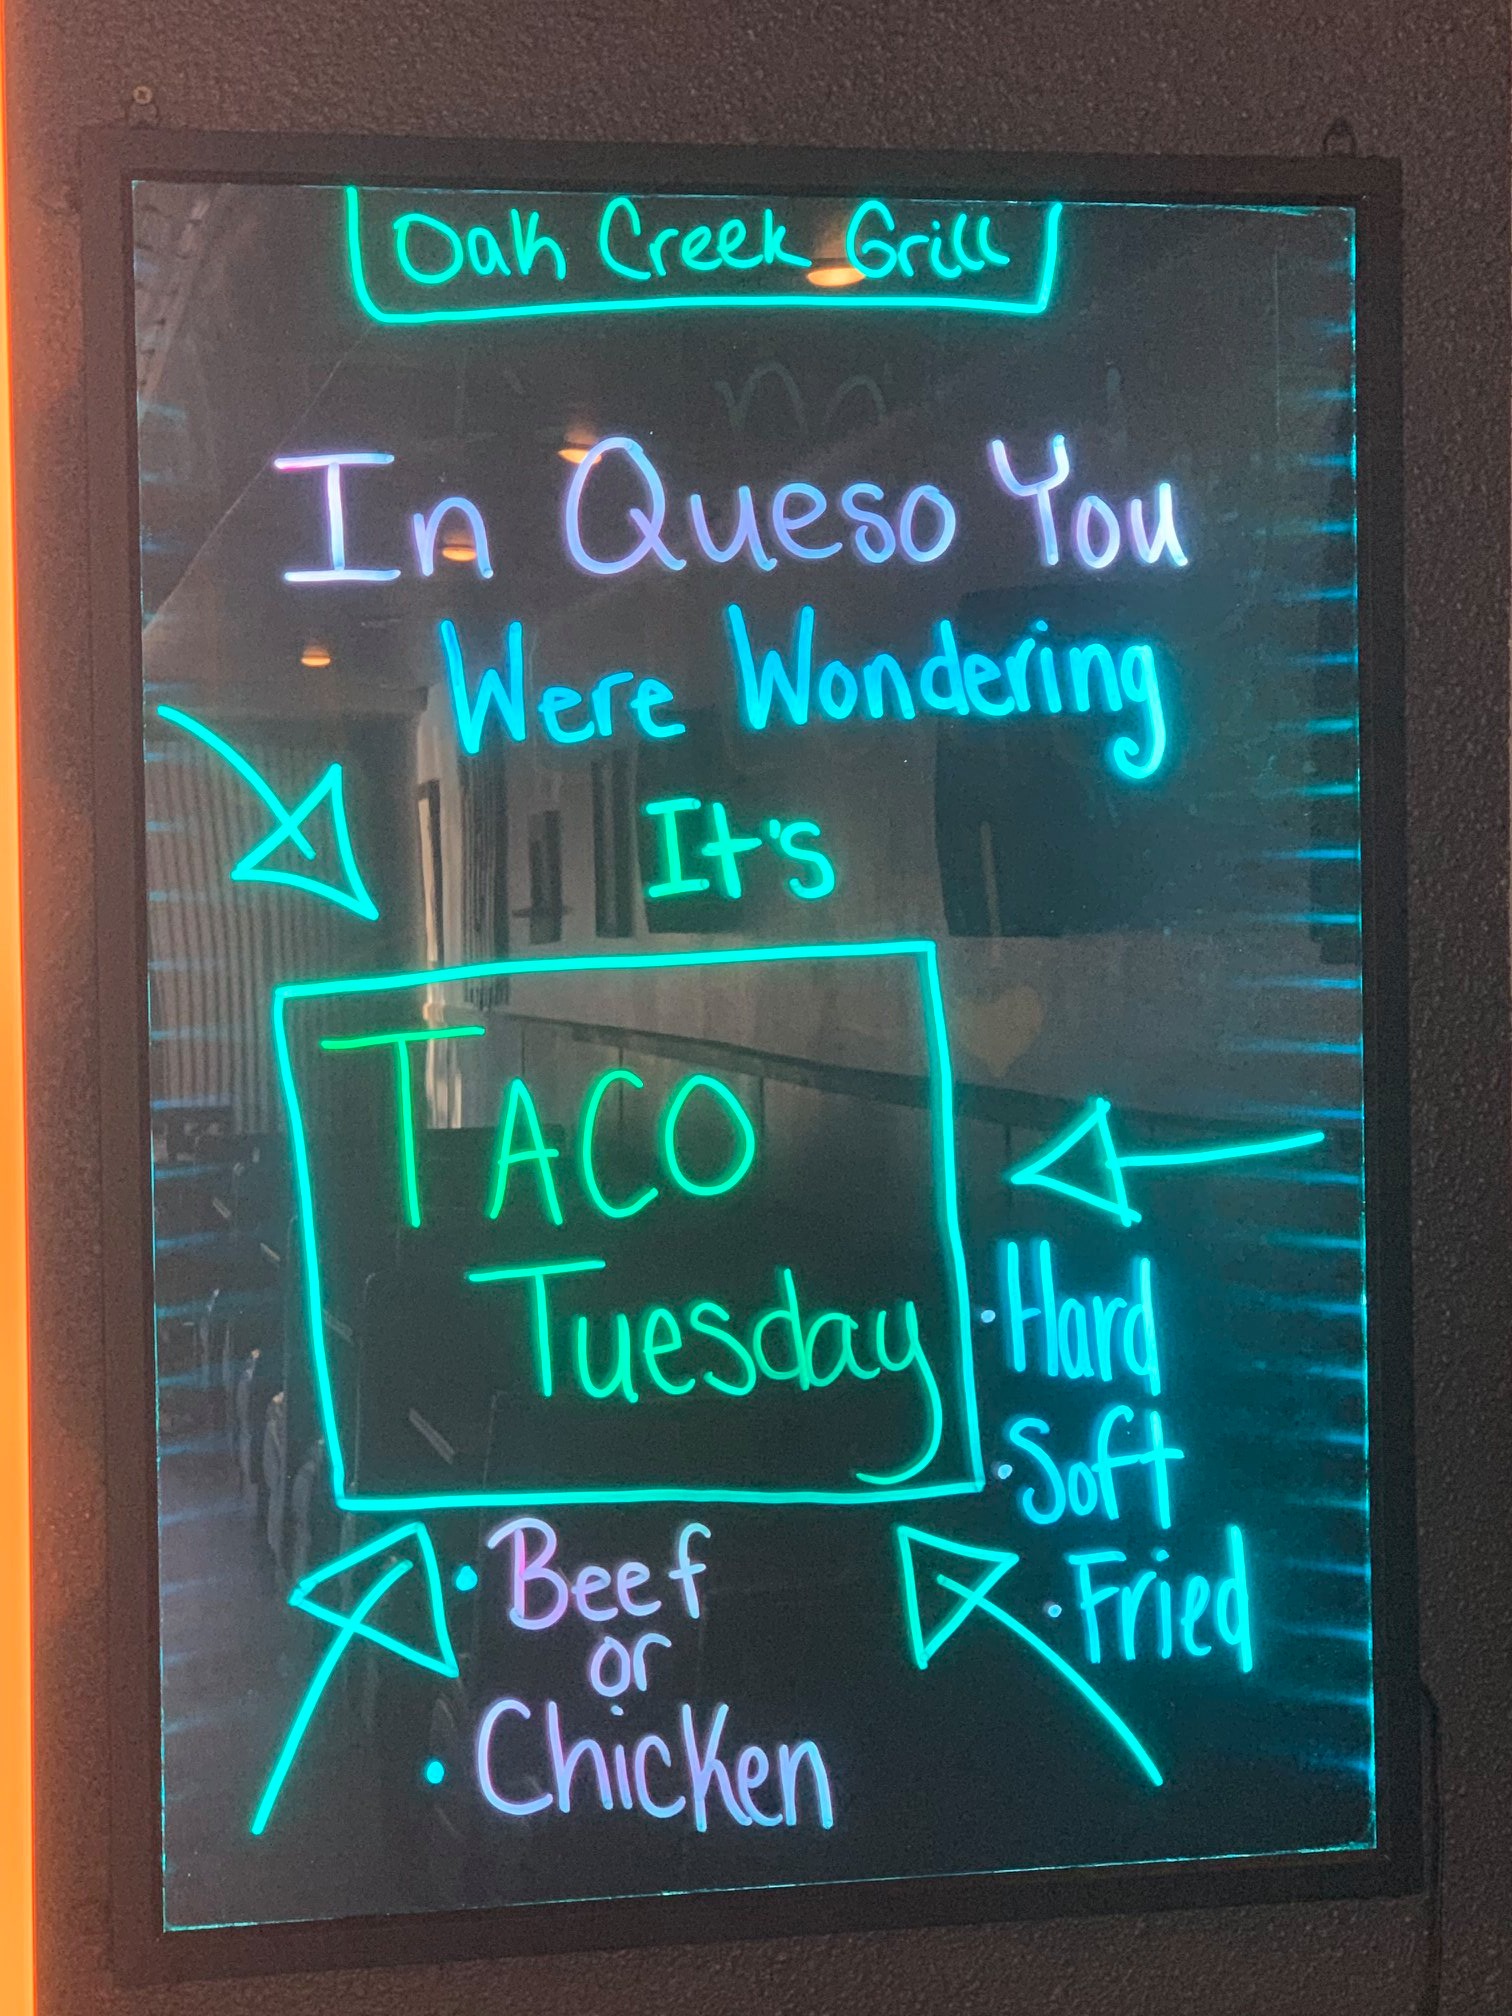 Oak Creek Grill
In Queso You
Were Wondering
It's
TACO
Tuesday
· Hard
· Soft
· Fried
· Beef
or
· Chicken